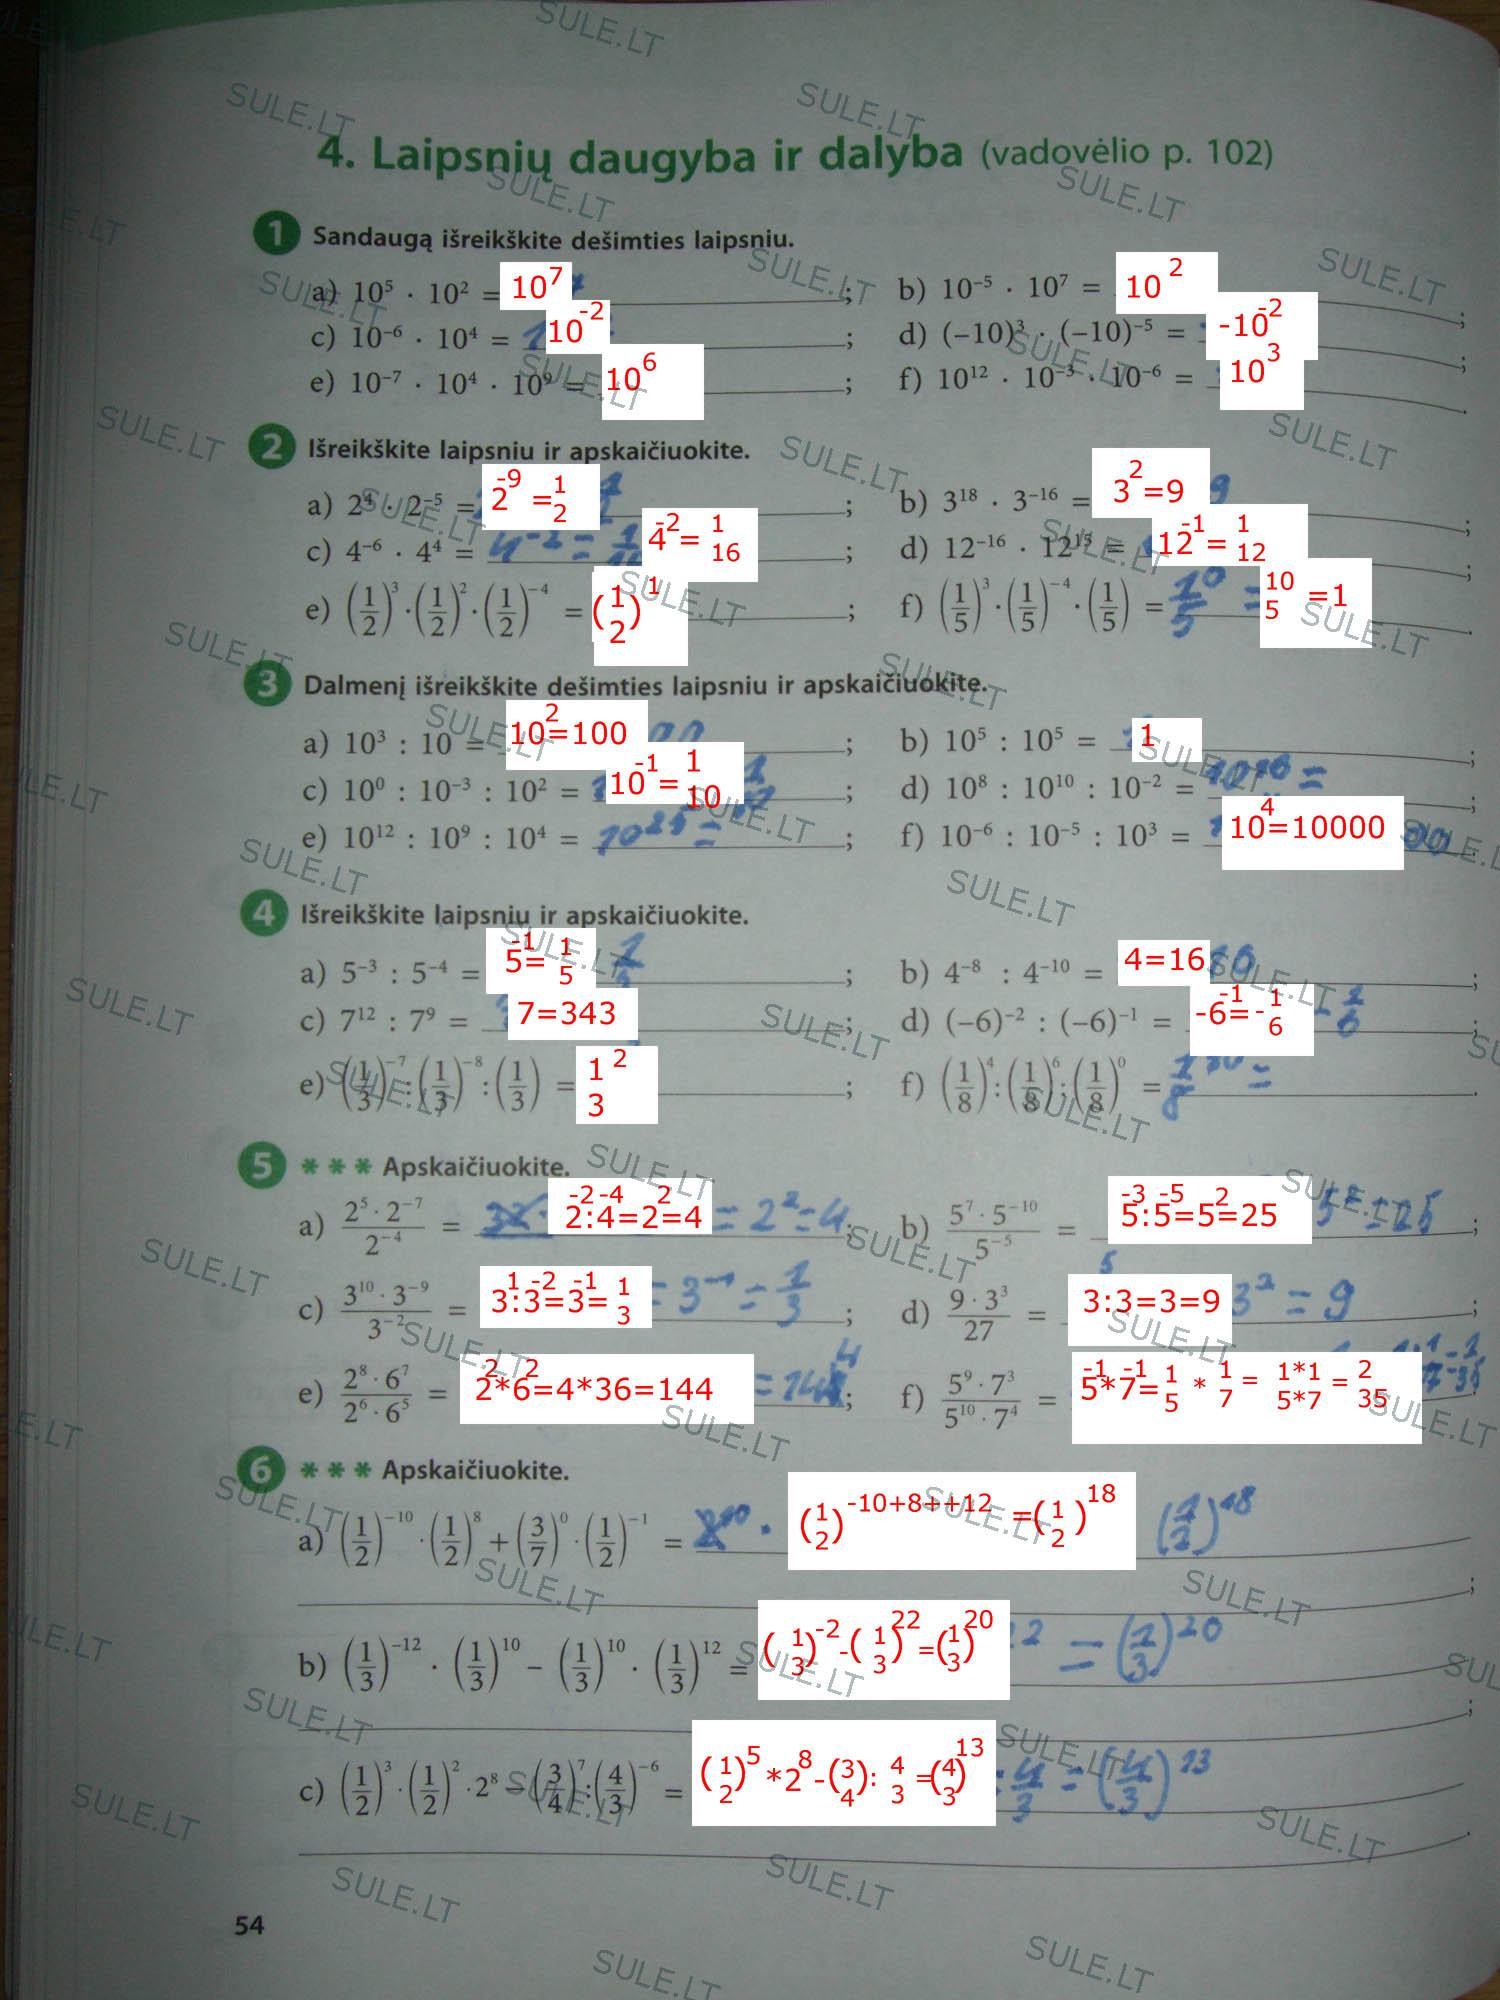 4. Laipsnių daugyba ir dalyba (vadovėlio p. 102)
1 Sandaugą išreikškite dešimties laipsniu.
a) 10⁵ · 10² = 10⁷ ; b) 10⁻⁵ · 10⁷ = 10² ;
c) 10⁻⁶ · 10⁴ = 10⁻² ; d) (−10)³ · (−10)⁻⁵ = -10⁻² ;
e) 10⁻⁷ · 10⁴ · 10⁹ = 10⁶ ; f) 10¹² · 10⁻³ · 10⁻⁶ = 10³ .
2 Išreikškite laipsniu ir apskaičiuokite.
a) 2⁴ · 2⁻⁵ = 2⁻⁹ = 1/2 ; b) 3¹⁸ · 3⁻¹⁶ = 3² = 9 ;
c) 4⁻⁶ · 4⁴ = 4⁻² = 4⁻² = 1/16 ; d) 12⁻¹⁶ · 12¹⁵ = 12⁻¹ = 1/12 ;
e) (1/2)³ · (1/2)² · (1/2)⁻⁴ = (1/2)¹ ; f) (1/5)³ · (1/5)⁻⁴ · (1/5) = 1/5⁰ = 10/5 = 1 .
3 Dalmenį išreikškite dešimties laipsniu ir apskaičiuokite.
a) 10³ : 10 = 10² = 100 ; b) 10⁵ : 10⁵ = 1 ;
c) 10⁰ : 10⁻³ : 10² = 10⁻¹ = 1/10 ; d) 10⁸ : 10¹⁰ : 10⁻² = ;
e) 10¹² : 10⁹ : 10⁴ = 10²⁵ = ; f) 10⁻⁶ : 10⁻⁵ : 10³ = 10⁴ = 10000 .
4 Išreikškite laipsniu ir apskaičiuokite.
a) 5⁻³ : 5⁻⁴ = 5⁻¹ = 1/5 ; b) 4⁻⁸ : 4⁻¹⁰ = 4=16 ;
c) 7¹² : 7⁹ = 7=343 ; d) (−6)⁻² : (−6)⁻¹ = -6⁻¹ = -1/6 ;
e) (1/3)⁻⁷ : (1/3)⁻⁸ : (1/3) = 1/3 ² ; f) (1/8)⁴ : (1/8)⁶ : (1/8)⁰ = .
5 *** Apskaičiuokite.
a) 2⁵ · 2⁻⁷ / 2⁻⁴ = 2⁻² : 4⁻⁴ = 2² = 4 = 2² = 4 ; b) 5⁷ · 5⁻¹⁰ / 5⁻⁵ = 5⁻³ : 5⁻⁵ = 5² = 25 5² = 25 ;
c) 3¹⁰ · 3⁻⁹ / 3⁻² = 3¹ : 3⁻² = 3⁻¹ = 1/3 = 3⁻¹ = 1/3 ; d) 9 · 3³ / 27 = 3:3=3=9 3² = 9 ;
e) 2⁸ · 6⁷ / 2⁶ · 6⁵ = 2² * 6² = 4*36=144 = 144 ; f) 5⁹ · 7³ / 5¹⁰ · 7⁴ = 5⁻¹ * 7⁻¹ = 1/5 * 1/7 = 1*1/5*7 = 2/35 .
6 *** Apskaičiuokite.
a) (1/2)⁻¹⁰ · (1/2)⁸ + (3/7)⁰ · (1/2)⁻¹ = (1/2)^-10+8++12 = (1/2)¹⁸ (1/2)¹⁸
;
b) (1/3)⁻¹² · (1/3)¹⁰ − (1/3)¹⁰ · (1/3)¹² = (1/3)⁻² - (1/3)²² = (1/3)²⁰ = (1/3)²⁰
;
c) (1/2)³ · (1/2)² · 2⁸ − (3/4)⁷ : (4/3)⁻⁶ = (1/2)⁵ * 2⁸ - (3/4) : 4/3 = (4/3)¹³ = 4/3 = (4/3)¹³
.
54
SULE.LT